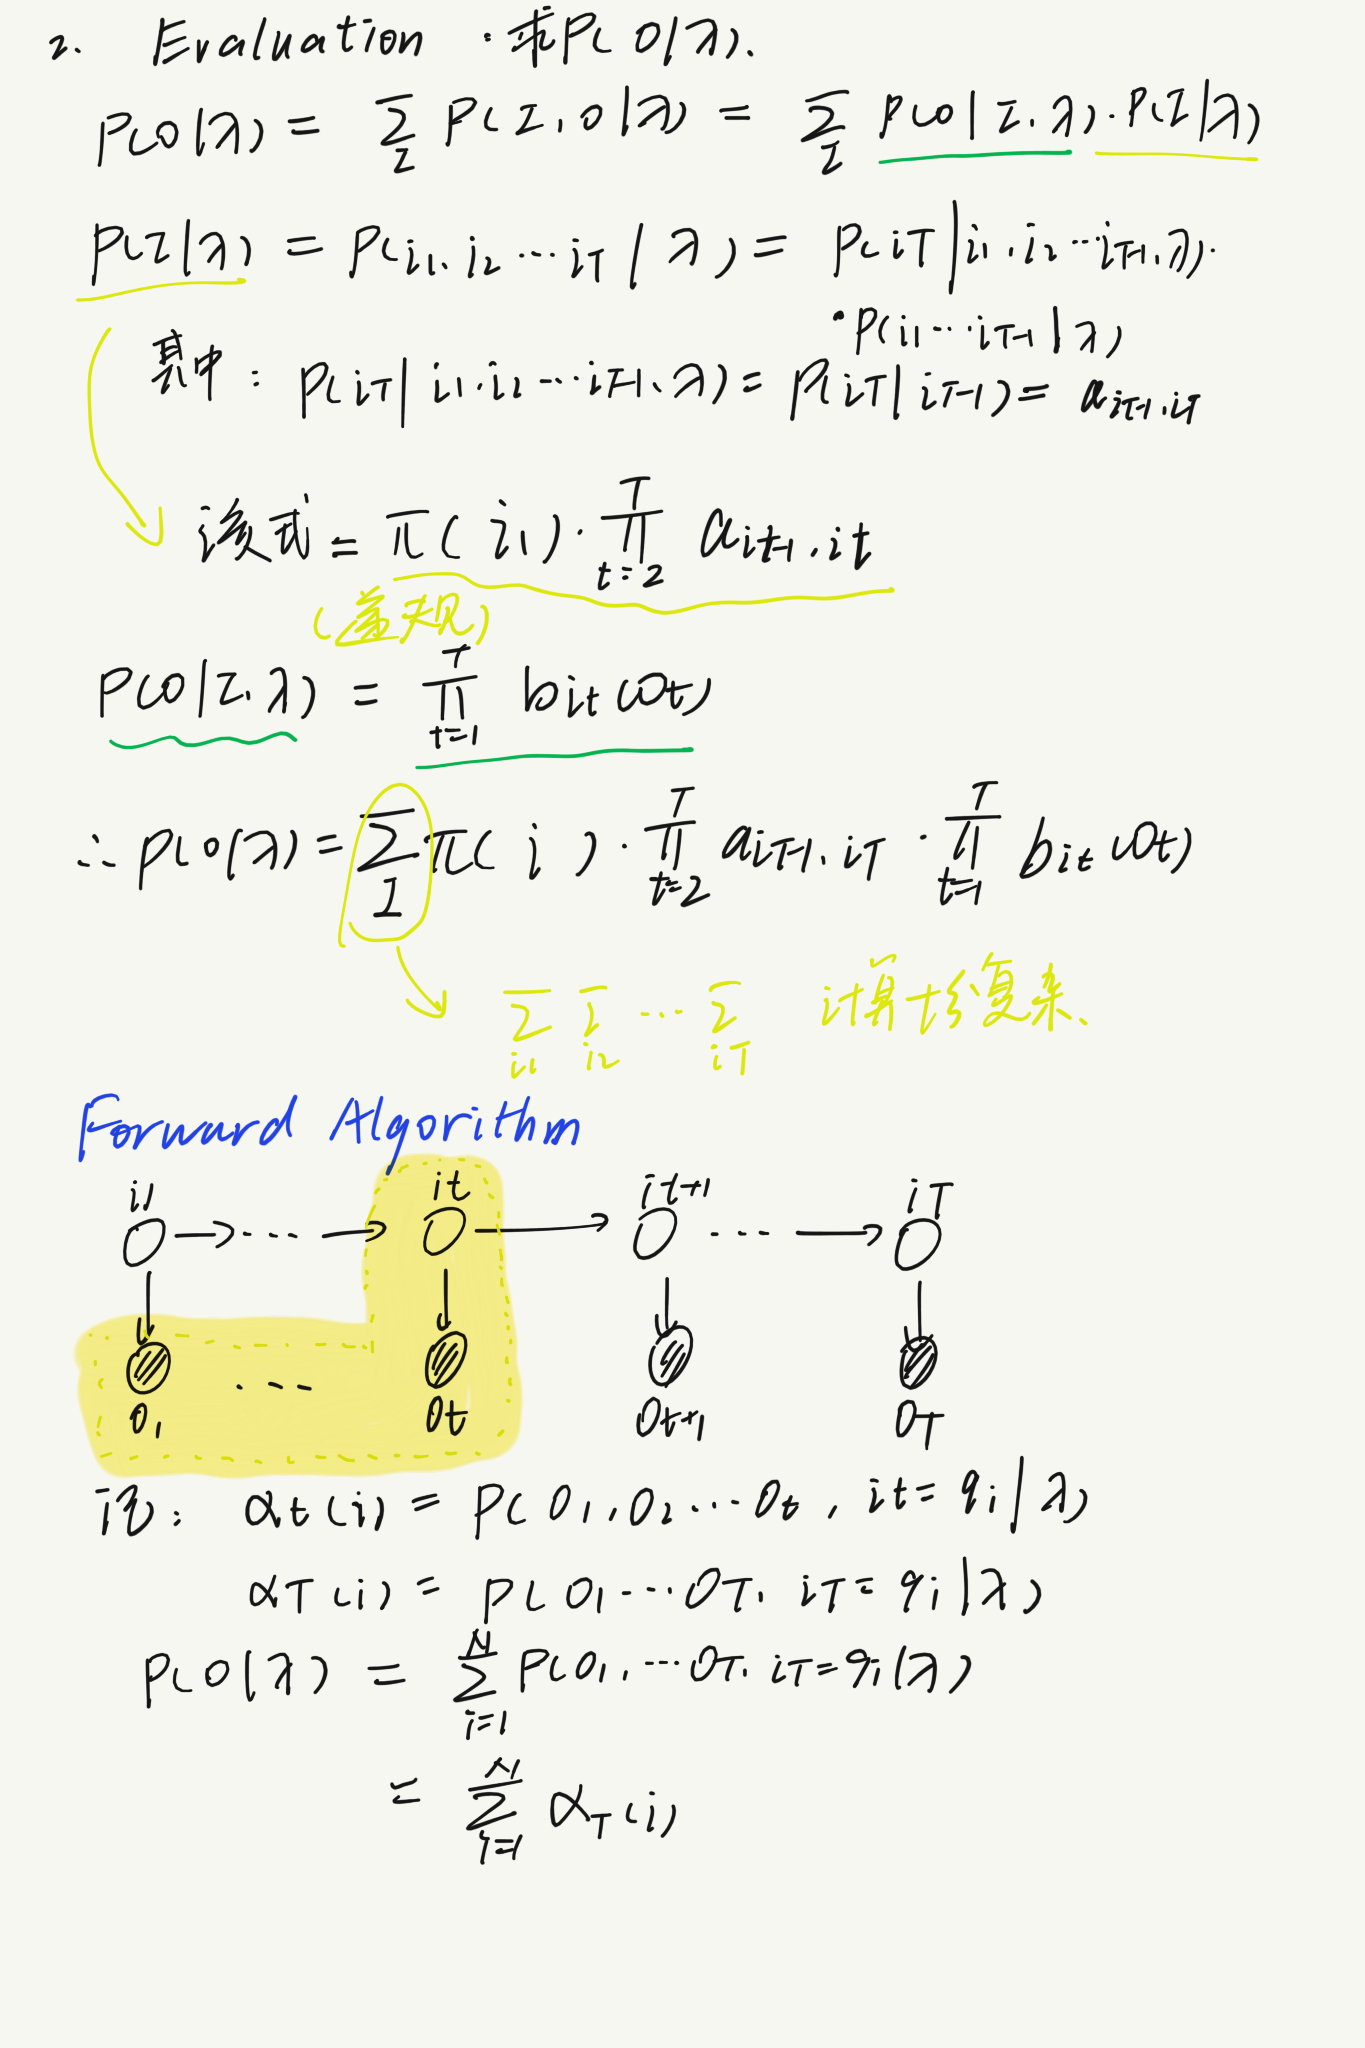 2. Evaluation · 求P(O|λ).
P(O|λ) = ∑_I P(I,O|λ) = ∑_I P(O|I,λ)·P(I|λ)
P(I|λ) = P(i1,i2…iT|λ) = P(iT|i1,i2…iT-1,λ)·
·P(i1…iT-1|λ)
其中: P(iT|i1,i2…iT-1,λ) = P(iT|iT-1) = a_{iT-1,iT}
该式 = π(i1)·∏_{t=2}^{T} a_{it-1,it}
(发现)
P(O|I,λ) = ∏_{t=1}^{T} b_{it}(Ot)
∴ P(O|λ) = ∑_I π(i)·∏_{t=2}^{T} a_{iT-1,iT}·∏_{t=1}^{T} b_{it}(Ot)
∑_{i1} ∑_{i2} … ∑_{iT} 计算十分复杂.
Forward Algorithm
i1 it it+1 iT
… … 
O1 … Ot Ot+1 OT
记: αt(i) = P(O1,O2…Ot, it=qi|λ)
αT(i) = P(O1…OT, iT=qi|λ)
P(O|λ) = ∑_{i=1}^{N} P(O1,…OT, iT=qi|λ)
= ∑_{i=1}^{N} α_T(i)